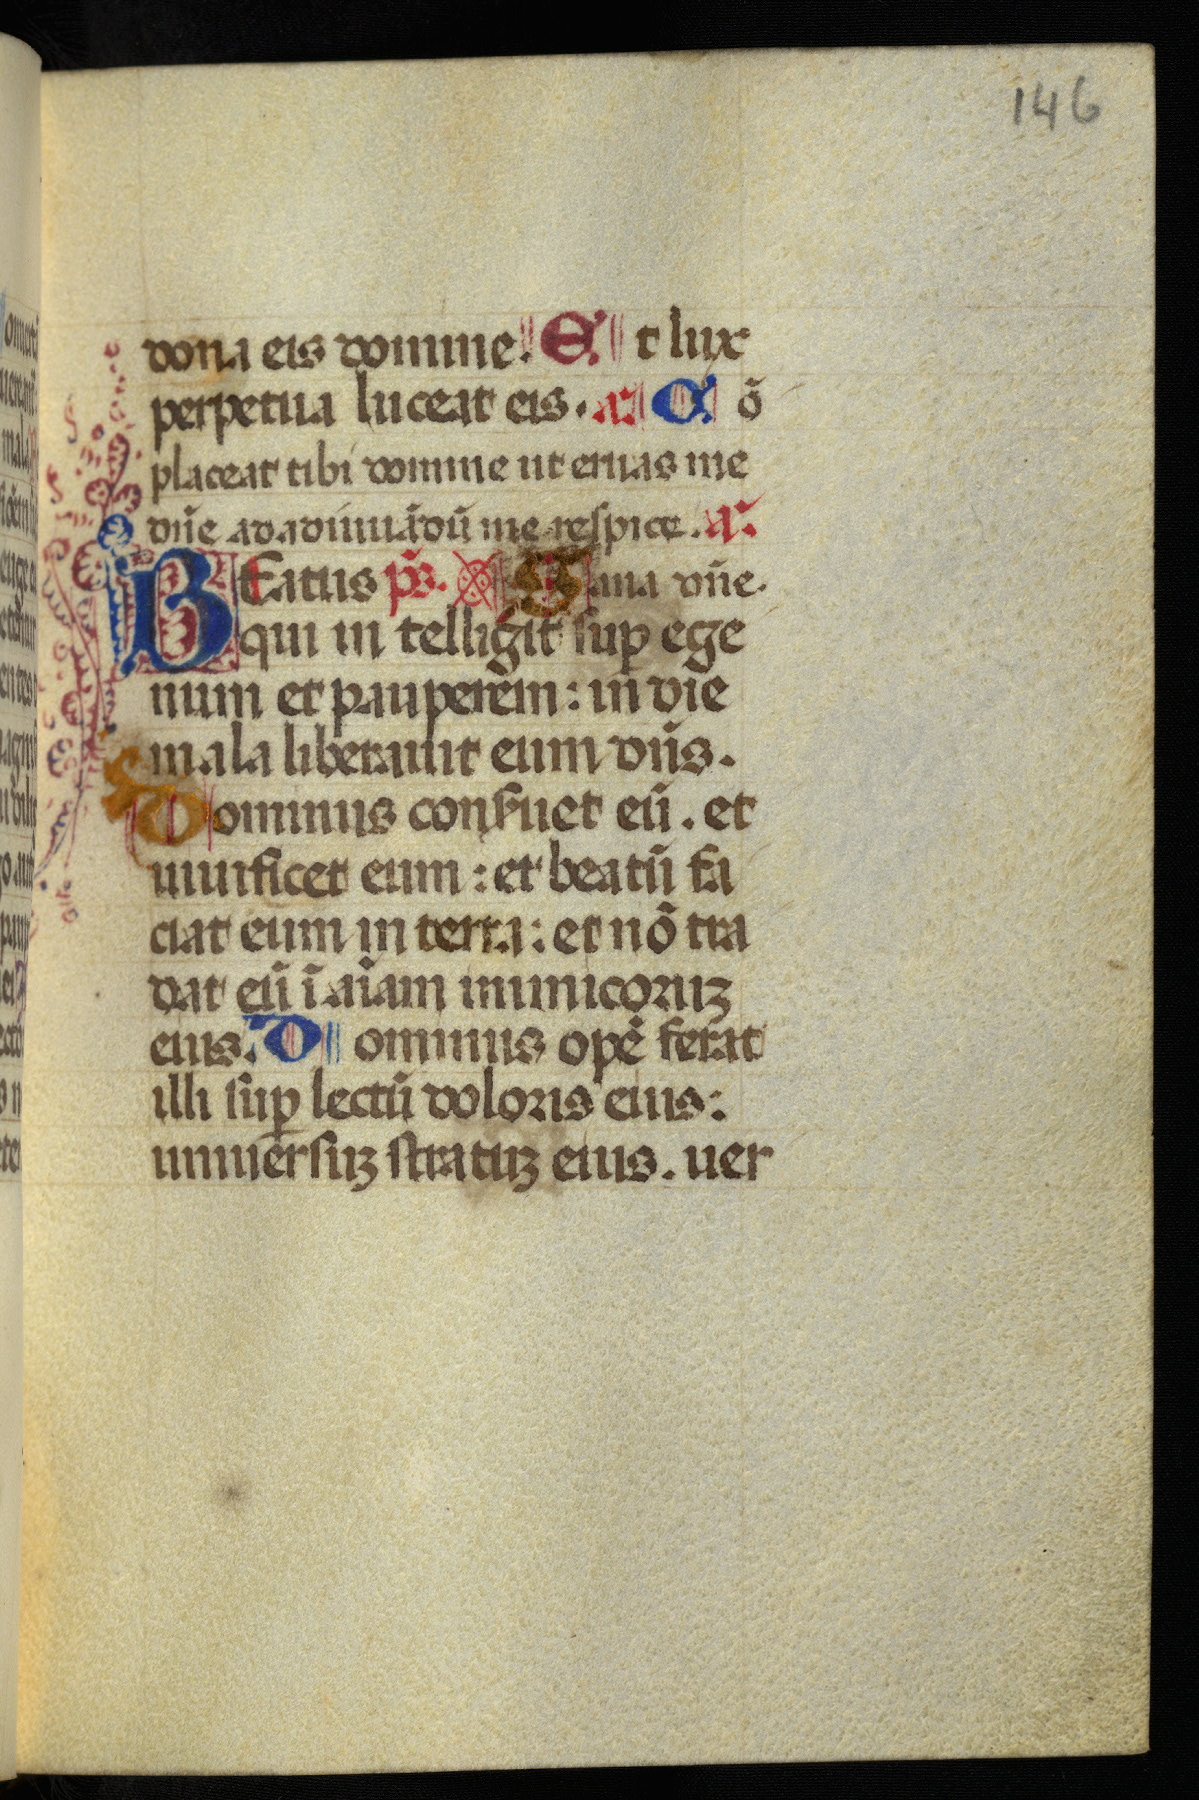 146
dona eis domine. Et lux
perpetua luceat eis. a. Cō
placeat tibi domine ut eruas me
dñe ad adiuuādū me respice. a.
BEatus p̄s. Sana dñe.
qui in telligit sup ege
num et pauperem: in die
mala liberauit eum dñs.
Dominus conseruet eū. et
uiuificet eum: et beatū fa
ciat eum in terra: et nō tra
dat eū ī aīam inimicoruʒ
eius. Dominus opē ferat
illi sup lectū doloris eius:
uniuersuʒ stratuʒ eius. uer